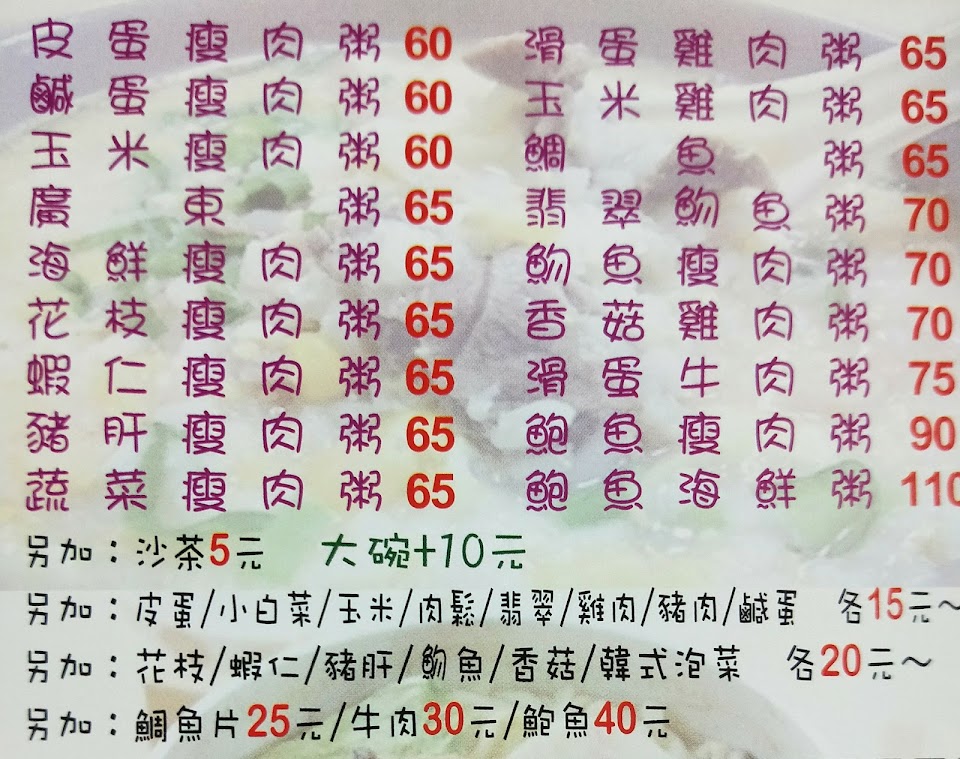 皮蛋瘦肉粥 60
鹹蛋瘦肉粥 60
玉米瘦肉粥 60
廣東粥 65
海鮮瘦肉粥 65
花枝瘦肉粥 65
蝦仁瘦肉粥 65
豬肝瘦肉粥 65
蔬菜瘦肉粥 65
滑蛋雞肉粥 65
玉米雞肉粥 65
鯛魚粥 65
翡翠魩魚粥 70
魩魚瘦肉粥 70
香菇雞肉粥 70
滑蛋牛肉粥 75
鮑魚瘦肉粥 90
鮑魚海鮮粥 110
另加：沙茶5元 大碗+10元
另加：皮蛋/小白菜/玉米/肉鬆/翡翠/雞肉/豬肉/鹹蛋 各15元～
另加：花枝/蝦仁/豬肝/魩魚/香菇/韓式泡菜 各20元～
另加：鯛魚片25元/牛肉30元/鮑魚40元